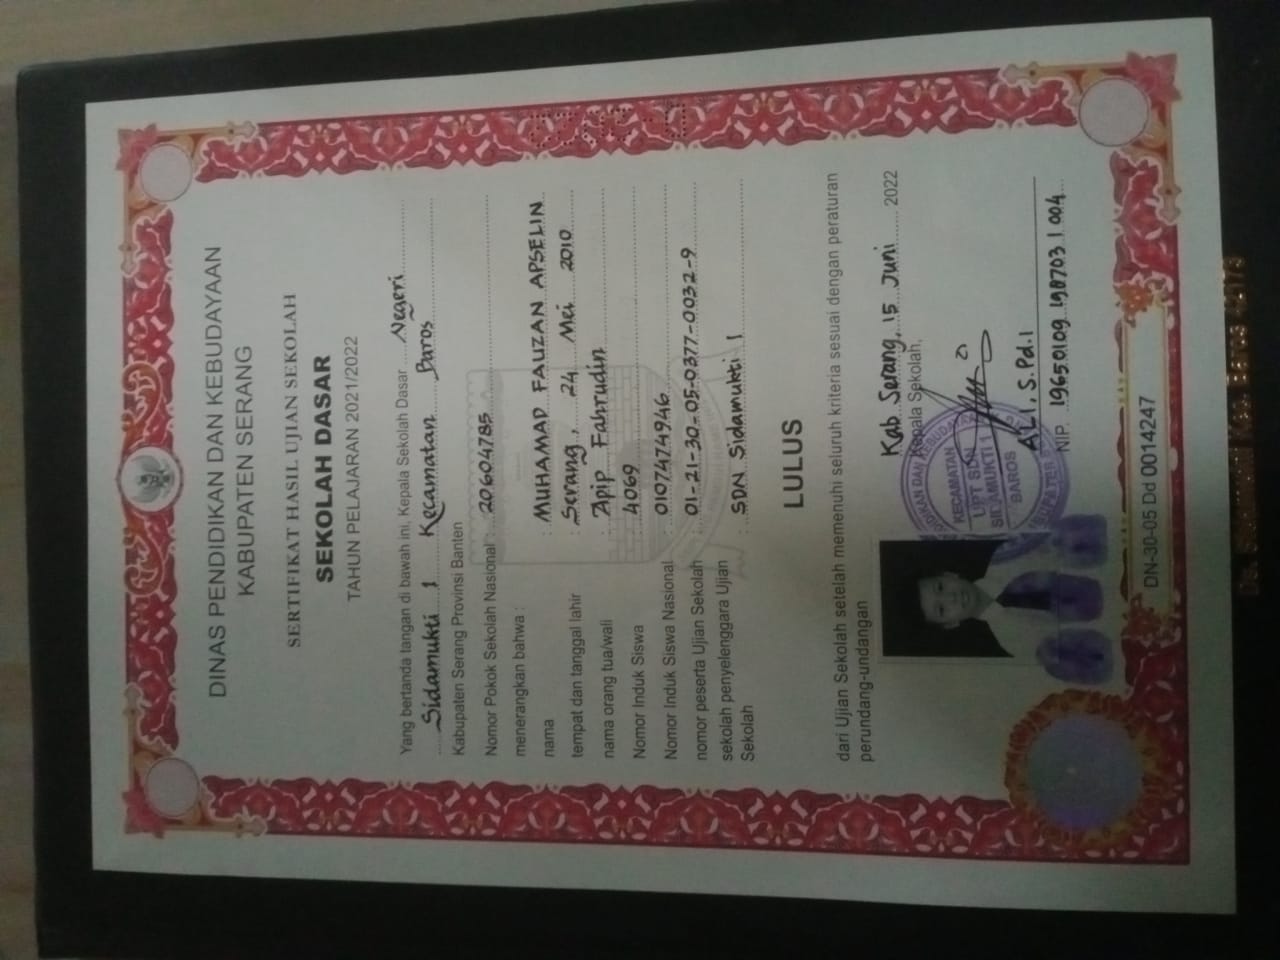 DINAS PENDIDIKAN DAN KEBUDAYAAN
KABUPATEN SERANG
SERTIFIKAT HASIL UJIAN SEKOLAH
SEKOLAH DASAR
TAHUN PELAJARAN 2021/2022
Yang bertanda tangan di bawah ini, Kepala Sekolah Dasar Negeri
Sidamukti 1 Kecamatan Baros
Kabupaten Serang Provinsi Banten
Nomor Pokok Sekolah Nasional : 20604785
menerangkan bahwa :
nama : MUHAMAD FAUZAN APSELIN
tempat dan tanggal lahir : Serang, 24 Mei 2010
nama orang tua/wali : Apip Fahrudin
Nomor Induk Siswa : 4069
Nomor Induk Siswa Nasional : 0107474946
nomor peserta Ujian Sekolah : 01-21-30-05-0377-0032-9
sekolah penyelenggara Ujian : SDN Sidamukti 1
Sekolah
LULUS
dari Ujian Sekolah setelah memenuhi seluruh kriteria sesuai dengan peraturan
perundang-undangan
Kab Serang, 15 Juni 2022
Kepala Sekolah,
KECAMATAN
UPT SDN
SIDAMUKTI 1
BAROS
ALI, S.Pd.I
NIP. 19650109 198703 1 004
DN-30-05 Dd 0014247